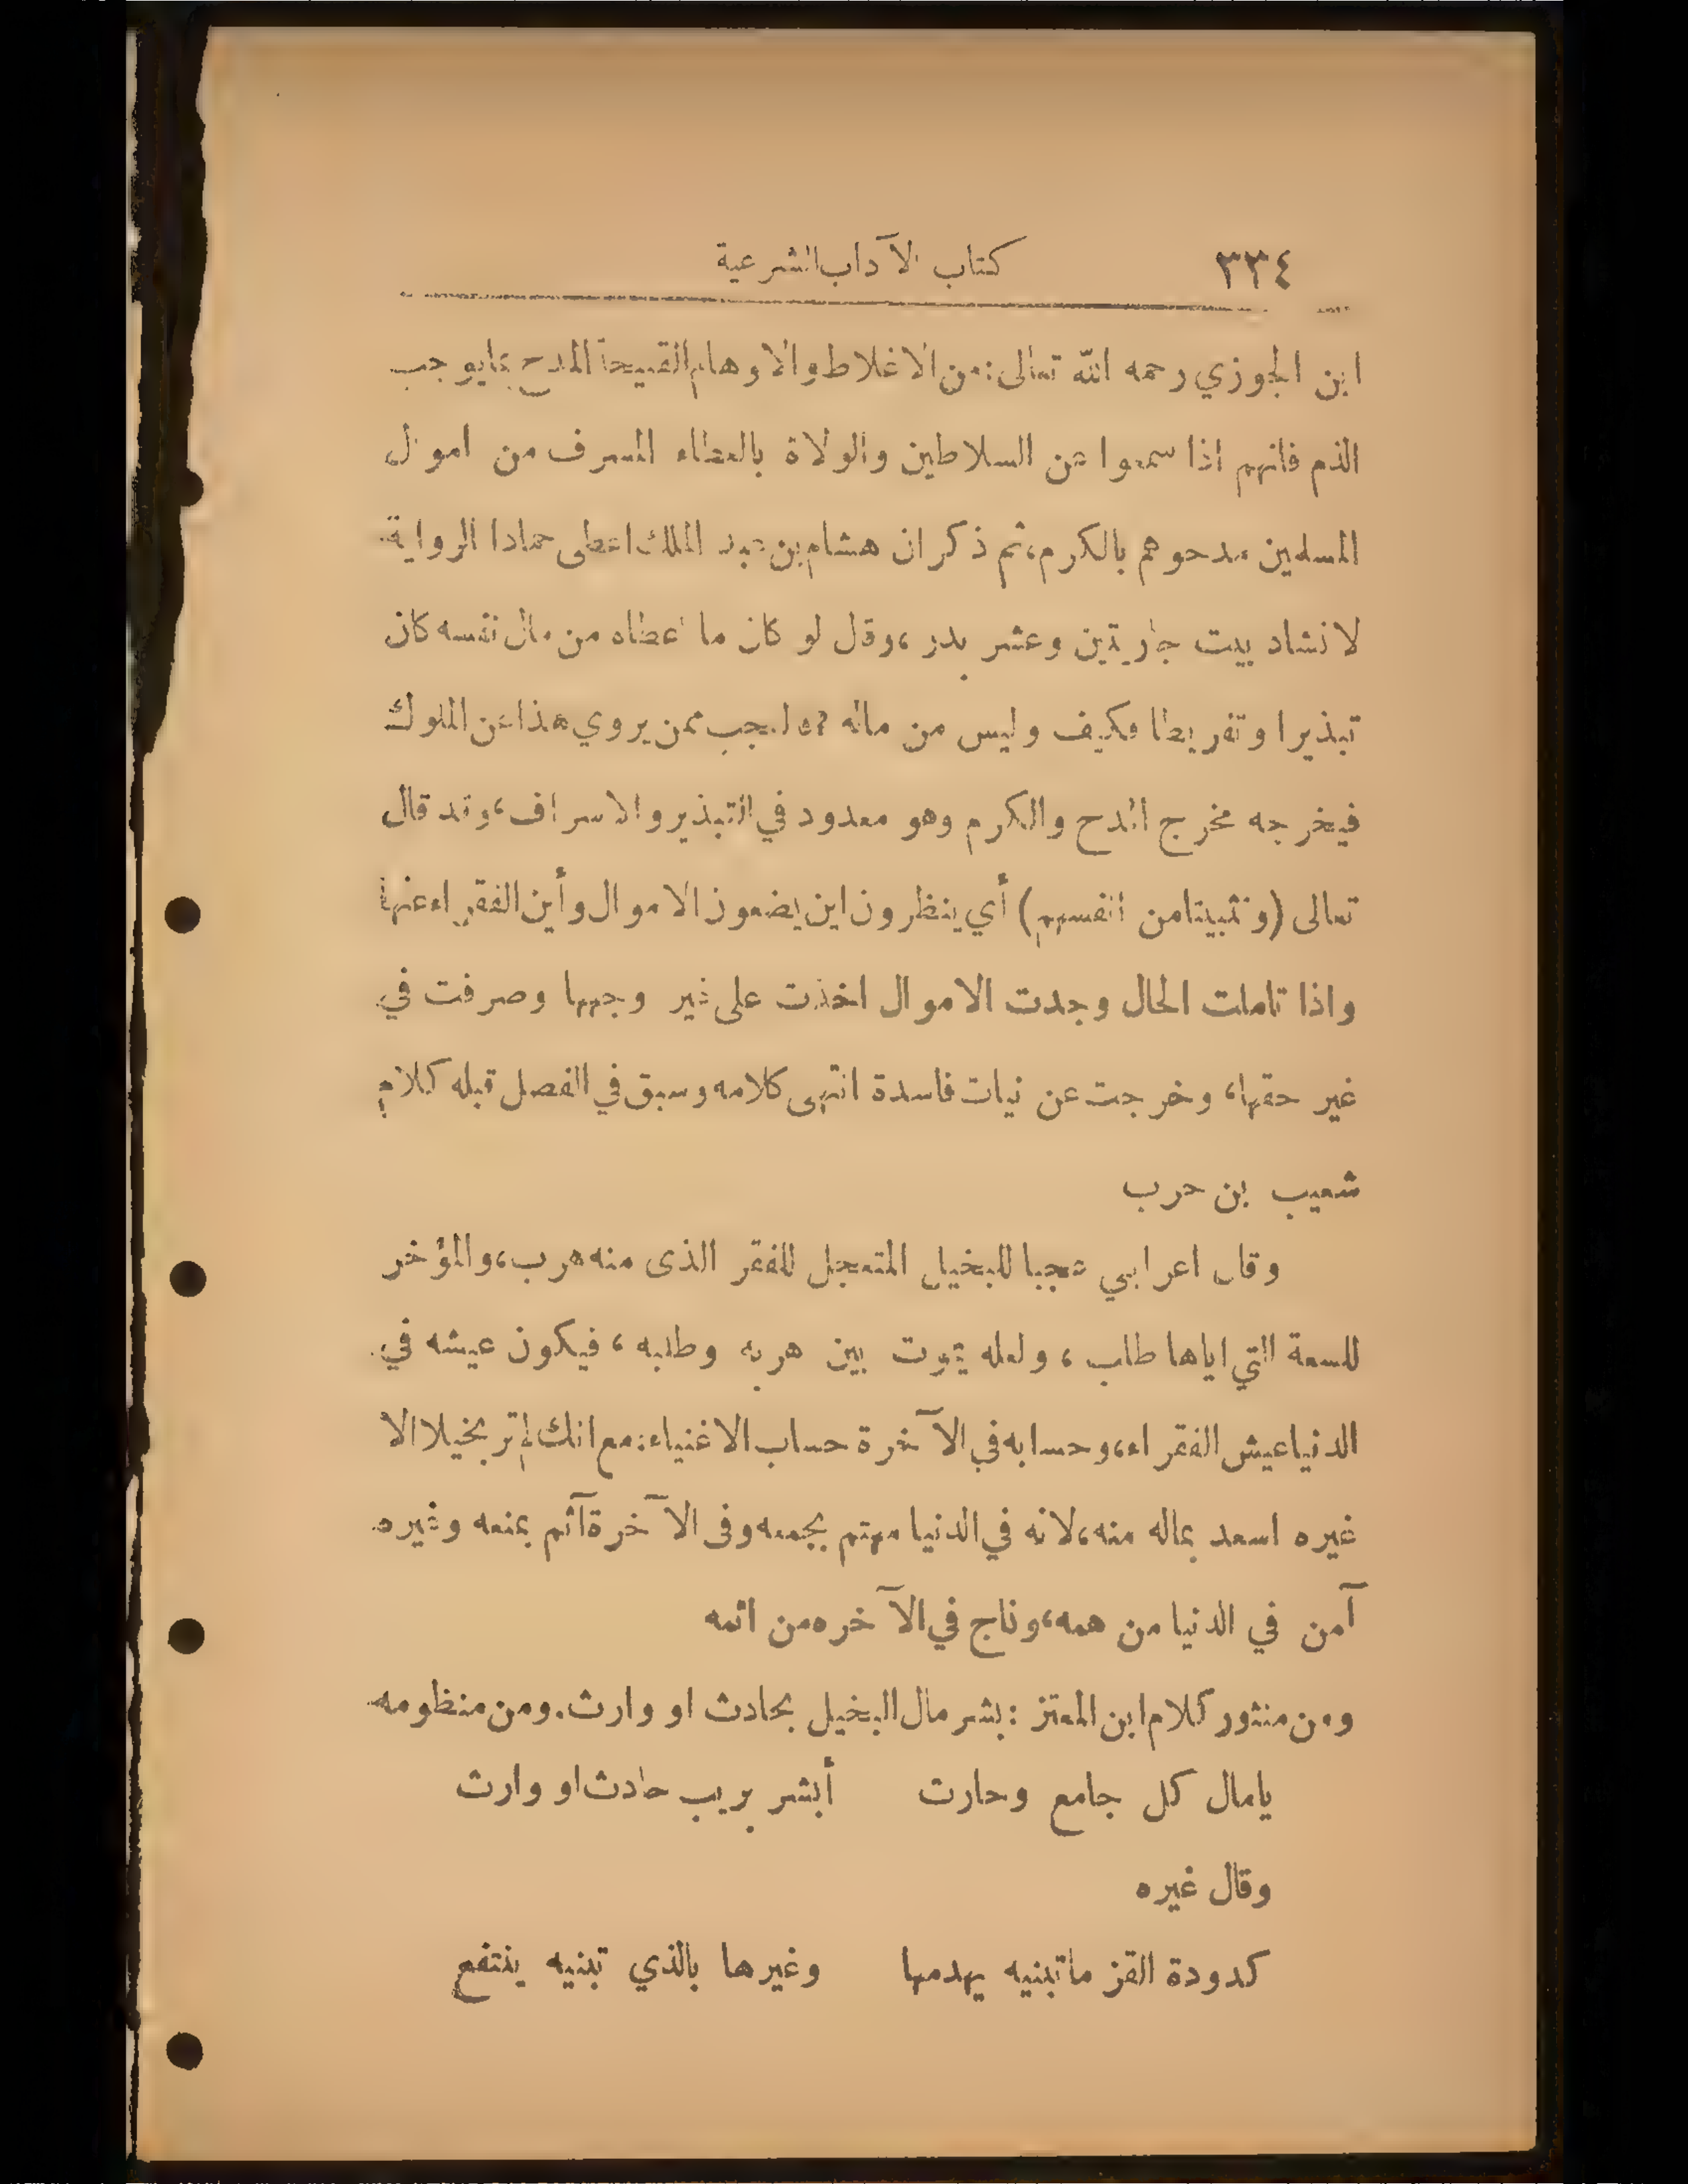 ٣٣٤ كتاب الآداب الشرعية
ابن الجوزي رحمه الله تعالى: من الاغلاط والاوهام القبيحة المدح بما يوجب
الذم فانهم اذا سمعوا عن السلاطين والولاة بالعطاء المسرف من اموال
المسلمين مدحوهم بالكرم، ثم ذكر ان هشام بن عبد الملك اعطى حمادا الرواية
لانشاد بيت جاريتين وعشر بدر، وقال لو كان ما اعطاه من مال نفسه كان
تبذيرا وتفريطا فكيف وليس من ماله ؟ والعجب ممن يروي هذا عن الملوك
فيخرجه مخرج المدح والكرم وهو معدود في التبذير والاسراف، وقد قال
تعالى (وتثبيتا من انفسهم) أي ينظرون اين يضعون الاموال وأين الفقراء عنها
واذا تاملت الحال وجدت الاموال اخذت على غير وجهها وصرفت في
غير حقها، وخرجت عن نيات فاسدة انتهى كلامه وسبق في الفصل قبله كلام
شعيب بن حرب
وقال اعرابي عجبا للبخيل المتعجل للفقر الذى منه هرب، والمؤخر
للسعة التي اياها طلب، ولعله يموت بين هربه وطلبه، فيكون عيشه في
الدنيا عيش الفقراء، وحسابه في الآخرة حساب الاغنياء: مع انك لم تر بخيلا الا
غيره اسعد بماله منه، لانه في الدنيا مهتم بجمعه وفى الآخرة آثم بمنعه وغيره
آمن في الدنيا من همه، وناج في الآخره من اثمه
ومن منثور كلام ابن المعتز : بشر مال البخيل بحادث او وارث. ومن منظومه
يامال كل جامع وحارت أبشر بريب حادث او وارث
وقال غيره
كدودة القز ماتبنيه يهدمها وغيرها بالذي تبنيه ينتفع